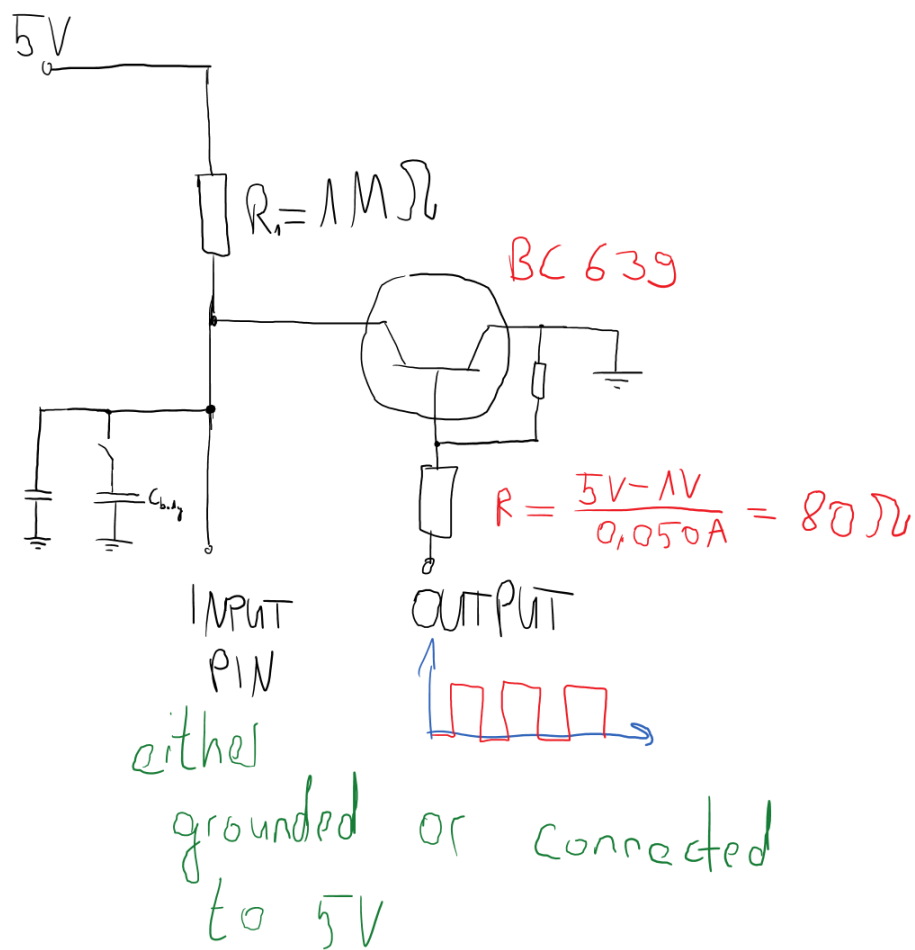 5V
R₁=1MΩ
BC 639
C body
R = 5V-1V / 0,050A = 80Ω
INPUT
PIN
OUTPUT
either
grounded or connected
to 5V